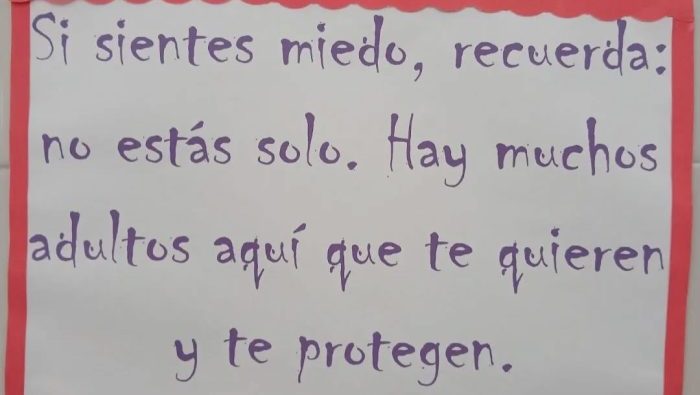 Si sientes miedo, recuerda:
no estás solo. Hay muchos
adultos aquí que te quieren
y te protegen.